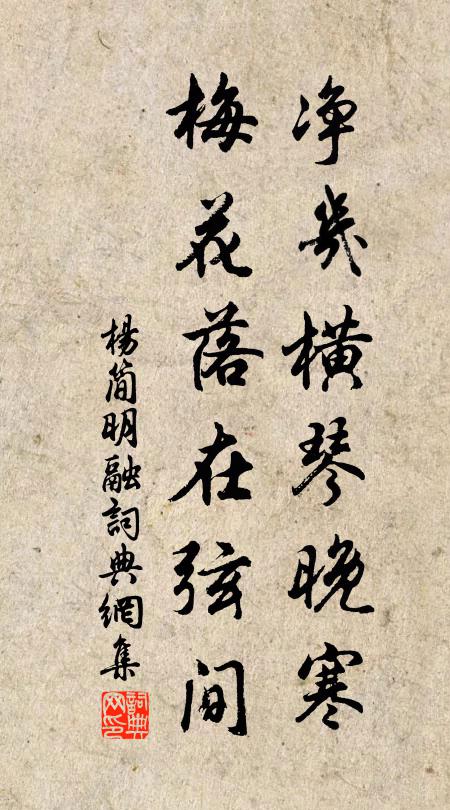 净几横琴晚寒
梅花落在弦间
楊简明融詞典網集
詞典网印